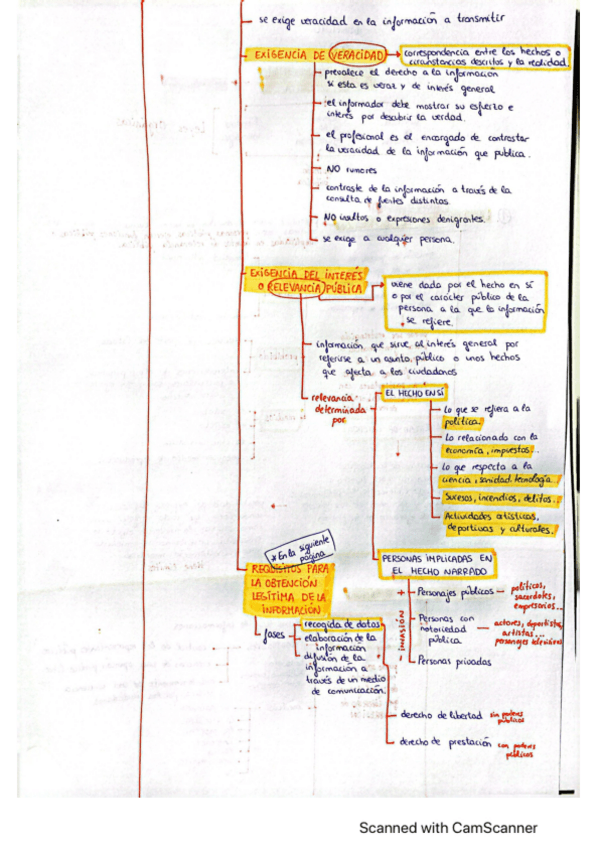 se exige veracidad en la información a transmitir
EXIGENCIA DE VERACIDAD
correspondencia entre los hechos o
circunstancias descritos y la realidad.
prevalece el derecho a la información
si esta es veraz y de interés general
el informador debe mostrar su esfuerzo e
interés por descubrir la verdad.
el profesional es el encargado de contrastar
la veracidad de la información que publica.
NO rumores
contraste de la información a través de la
consulta de fuentes distintas.
NO insultos o expresiones denigrantes.
se exige a cualquier persona.
EXIGENCIA DEL INTERÉS
O RELEVANCIA PÚBLICA
viene dada por el hecho en sí
o por el carácter público de la
persona a la que la información
se refiere.
información que sirve al interés general por
referirse a un asunto público o unos hechos
que afecta a los ciudadanos
relevancia
determinada
por
EL HECHO EN SÍ
Lo que se refiera a la
política.
Lo relacionado con la
economía, impuestos...
Lo que respecta a la
ciencia, sanidad, tecnología...
Sucesos, incendios, delitos...
Actividades artísticas,
deportivas y culturales.
PERSONAS IMPLICADAS EN
EL HECHO NARRADO
- invasión +
Personajes públicos
políticos,
sacerdotes,
empresarios...
Personas con
notoriedad
pública
actores, deportistas,
artistas...
personajes televisivos
Personas privadas
* En la siguiente
página
REQUISITOS PARA
LA OBTENCIÓN
LEGÍTIMA DE LA
INFORMACIÓN
fases
recogida de datos
elaboración de la
información
difusión de la
información a
través de un medio
de comunicación.
derecho de libertad
sin poderes
públicos
derecho de prestación
con poderes
públicos
Scanned with CamScanner